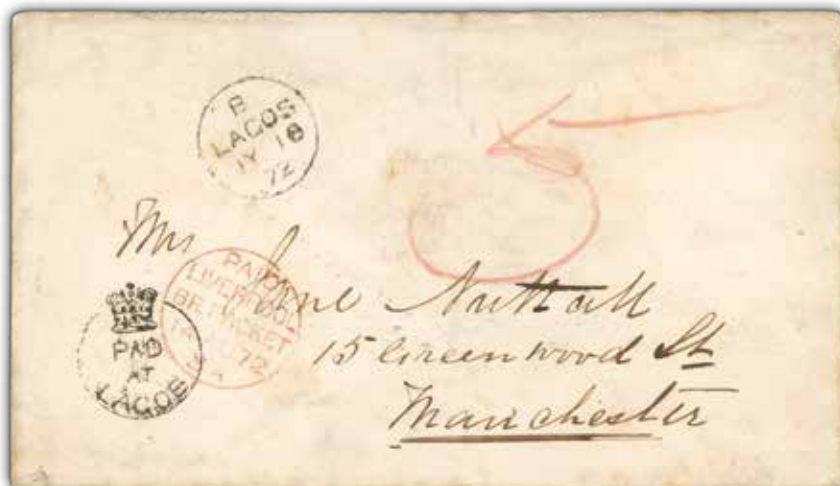 B
LAGOS
18
72
5
Mrs Jane Nuttall
15 Greenwood St
Manchester
PAID
LIVERPOOL
BR. PACKET
72
PAID
AT
LAGOS